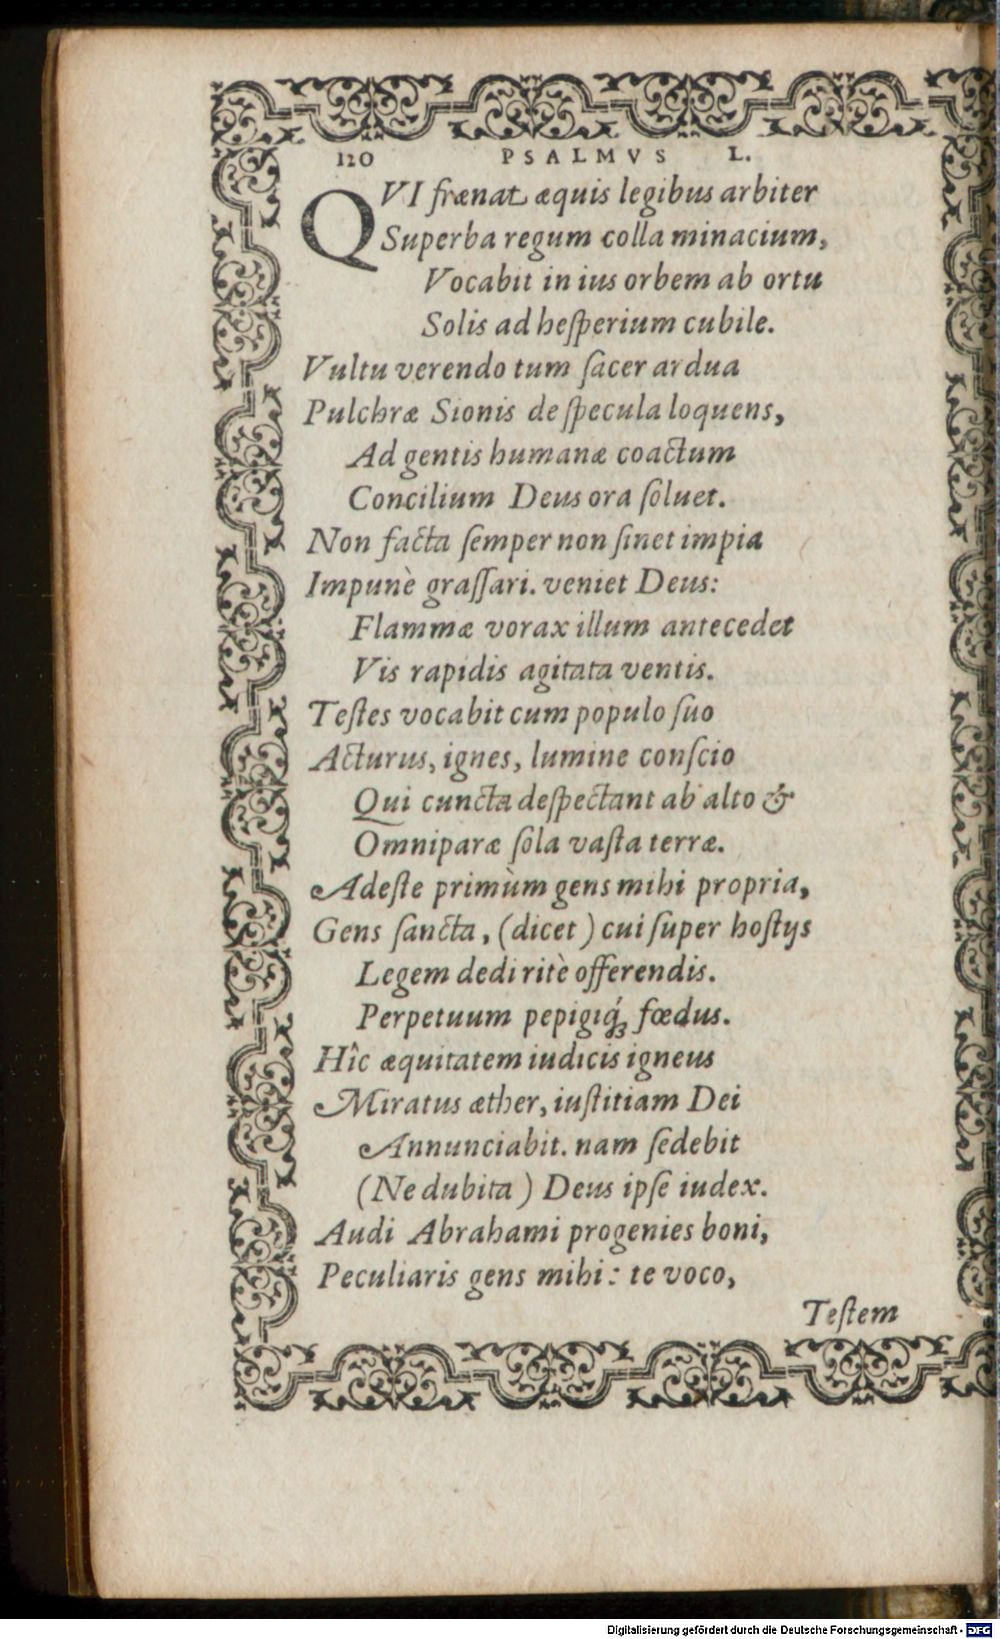 120 PSALMVS L.
QVI frænat æquis legibus arbiter
Superba regum colla minacium,
Vocabit in ius orbem ab ortu
Solis ad heſperium cubile.
Vultu verendo tum ſacer ardua
Pulchræ Sionis de ſpecula loquens,
Ad gentis humanæ coactum
Concilium Deus ora ſoluet.
Non facta ſemper non ſinet impia
Impunè graſſari. veniet Deus:
Flammæ vorax illum antecedet
Vis rapidis agitata ventis.
Teſtes vocabit cum populo ſuo
Acturus, ignes, lumine conſcio
Qui cuncta deſpectant ab alto &
Omniparæ ſola vaſta terræ.
Adeſte primùm gens mihi propria,
Gens ſancta, (dicet) cui ſuper hoſtijs
Legem dedi ritè offerendis.
Perpetuum pepigiq́; fœdus.
Hîc æquitatem iudicis igneus
Miratus æther, iuſtitiam Dei
Annunciabit. nam ſedebit
(Ne dubita) Deus ipſe iudex.
Audi Abrahami progenies boni,
Peculiaris gens mihi: te voco,
Teſtem
Digitalisierung gefördert durch die Deutsche Forschungsgemeinschaft - DFG